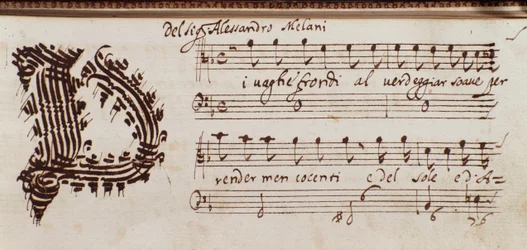 Del Sig. Alessandro Melani
D
i vaghe frondi al verdeggiar soave per
render men cocenti e del sole e d'A=
♯6
7 6